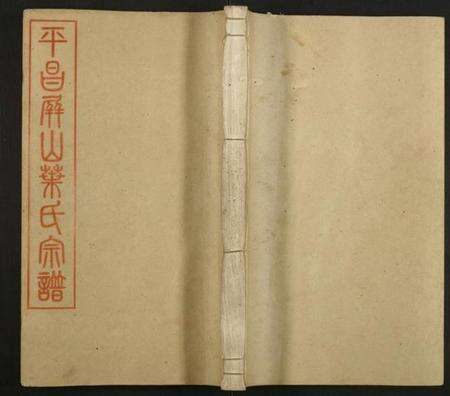 平昌屏山葉氏宗譜